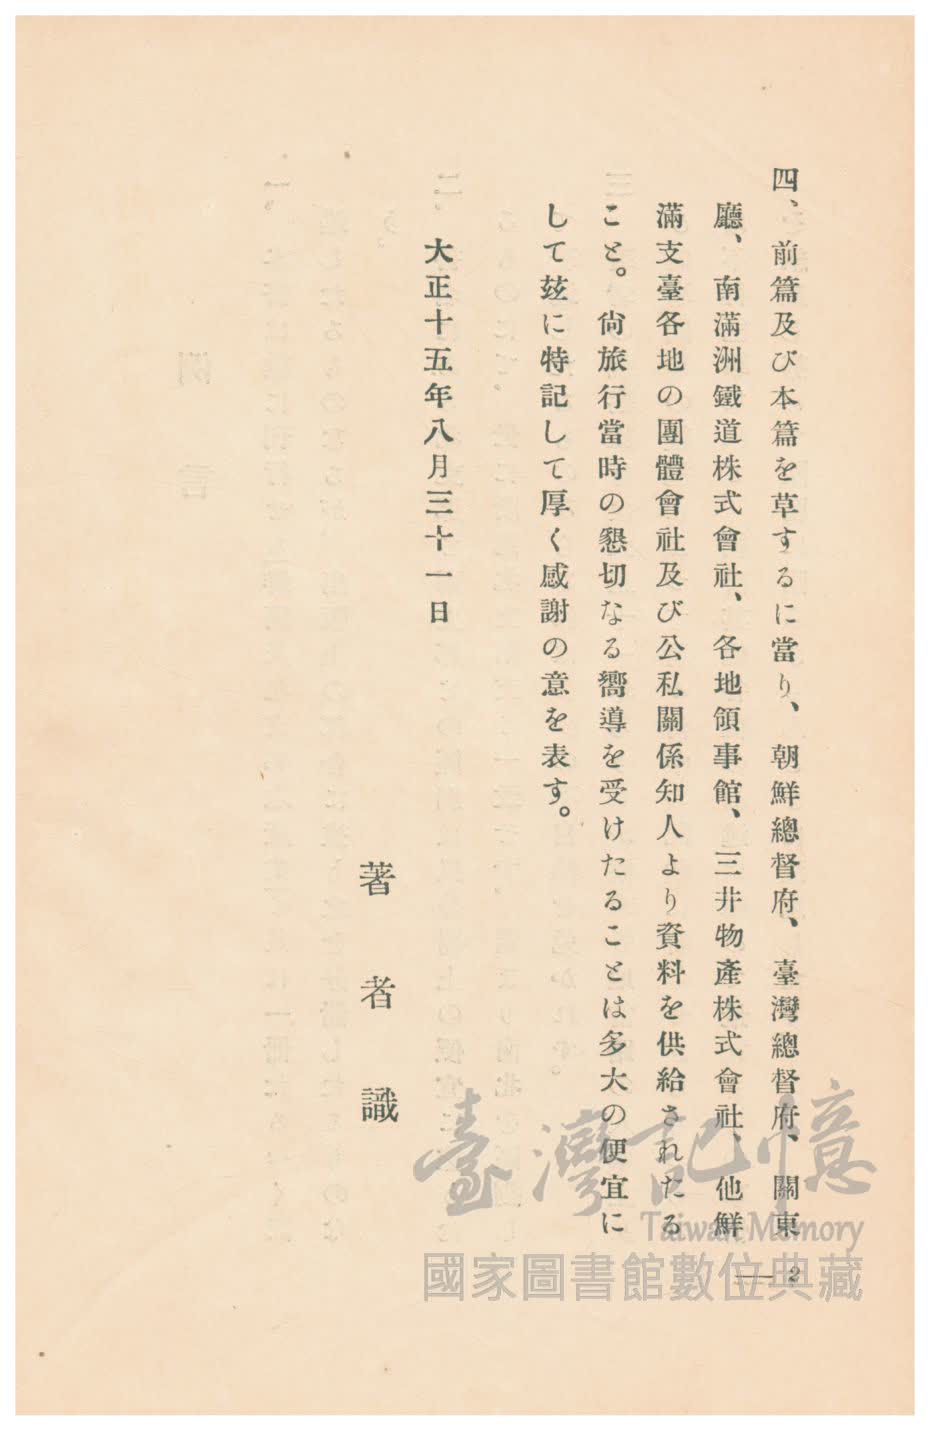 四、前篇及び本篇を草するに當り、朝鮮總督府、臺灣總督府、關東
廳、南滿洲鐵道株式會社、各地領事館、三井物產株式會社、他鮮
滿支臺各地の團體會社及び公私關係知人より資料を供給されたる
こと。尙旅行當時の懇切なる嚮導を受けたることは多大の便宜に
して玆に特記して厚く感謝の意を表す。
大正十五年八月三十一日
著者識
2
臺灣記憶
Taiwan Memory
國家圖書館數位典藏